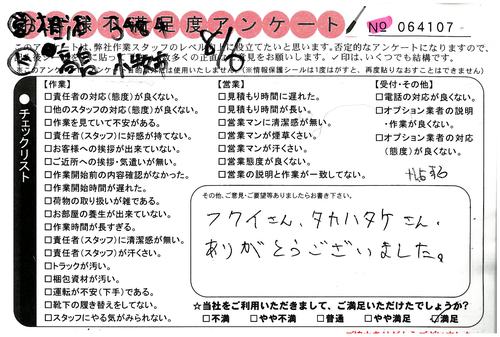 お客様不満足度アンケート
No 064107
8/6
このアンケートは、弊社作業スタッフのレベル向上に役立てたいと思います。否定的なアンケートになりますので、
✓印は、いくつでも結構です。
【作業】
□責任者の対応(態度)が良くない。
□他のスタッフの対応(態度)が良くない。
□作業を見ていて不安がある。
□責任者(スタッフ)に好感が持てない。
□お客様への挨拶が出来ていない。
□ご近所への挨拶・気遣いが無い。
□作業開始前の内容確認がなかった。
□作業開始時間が遅れた。
□荷物の取り扱いが雑である。
□お部屋の養生が出来ていない。
□作業時間が長すぎる。
□責任者(スタッフ)に清潔感が無い。
□責任者(スタッフ)が汗くさい。
□トラックが汚い。
□梱包資材が汚い。
□運転が不安(下手)である。
□靴下の履き替えをしてない。
□スタッフにやる気がみられない。
【営業】
□見積もり時間に遅れた。
□見積もり時間が長い。
□営業マンに清潔感が無い。
□営業マンが煙草くさい。
□営業マンが汗くさい。
□営業態度が良くない。
□営業の説明と作業が一致してない。
【受付・その他】
□電話の対応が良くない。
□オプション業者の説明
・作業が良くない。
□オプション業者の対応
(態度)が良くない。
●チェックリスト
その他、ご意見・ご要望等ありましたらお書き下さい。
フクイさん、タカハタケさん、
ありがとうございました。
☆当社をご利用いただきまして、ご満足いただけたでしょうか?
□不満 □やや不満 □普通 □やや満足 ☑満足